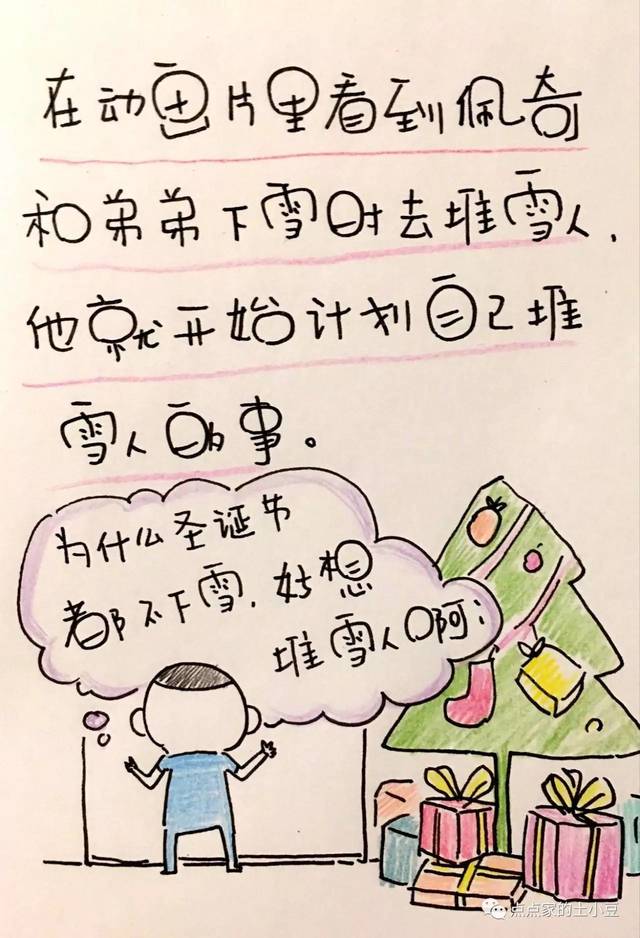 在动画片里看到佩奇
和弟弟下雪时去堆雪人，
他就开始计划自己堆
雪人的事。
为什么圣诞节
都不下雪，好想
堆雪人啊；
点点家的土小豆